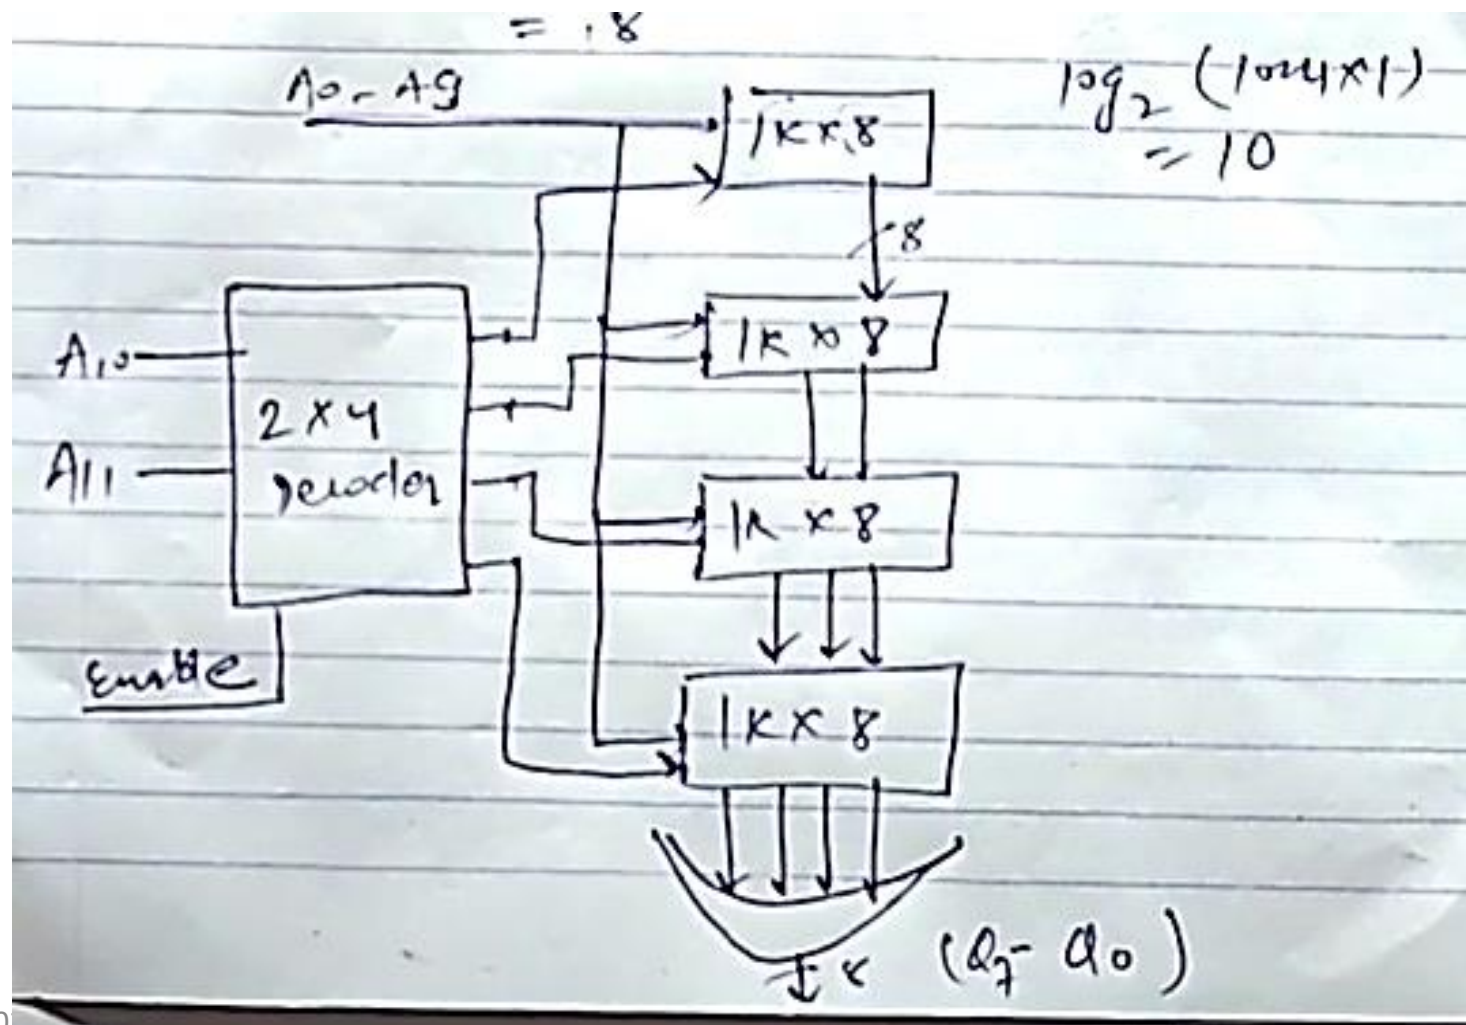 = .8
A0 - A9
log2 (1024x1)
= 10
1K x 8
8
1K x 8
A10
2 x 4
Decoder
A11
1K x 8
Enable
1K x 8
8 (Q7 - Q0)